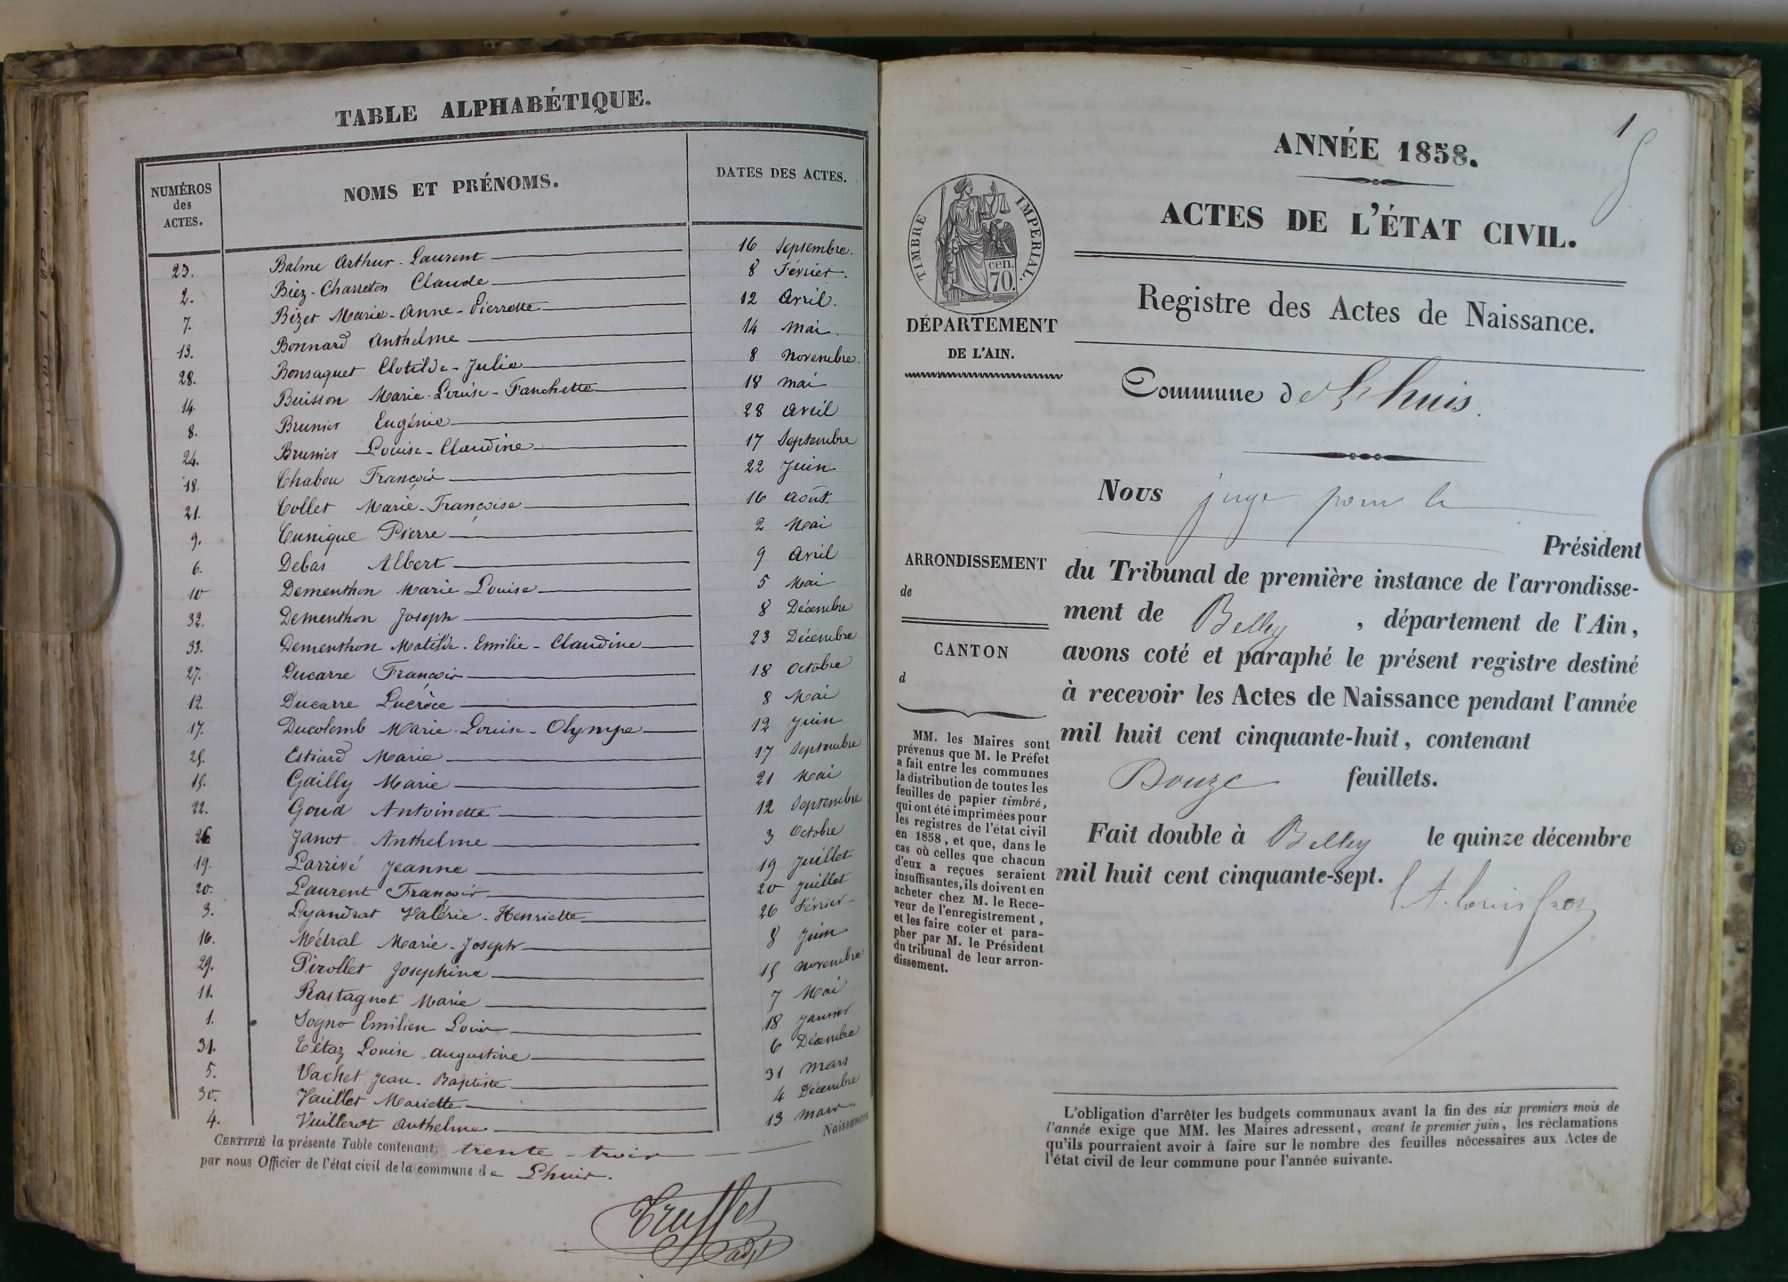 TABLE ALPHABÉTIQUE.
NUMÉROS des ACTES. NOMS ET PRÉNOMS. DATES DES ACTES.
23. Balme Arthur-Laurent 16 Septembre.
2. Biez-Charreton Claude 8 Février.
7. Bizet Marie-Anne-Pierrette 12 Avril.
13. Bonnard Anthelme 14 Mai.
28. Bonsaquet Clotilde-Julie 8 Novembre.
14. Buisson Marie-Louise-Fanchette 18 Mai
8. Brunier Eugénie 28 Avril
24. Brunier Louise-Claudine 17 Septembre
18. Chabou François 22 Juin
21. Collet Marie-Françoise 16 Août
9. Cunique Pierre 2 Mai
6. Debas Albert 9 Avril
10 Dementhon Marie Louise 5 Mai
32. Dementhon Joseph 8 Décembre
33. Dementhon Matilde-Emilie-Claudine 23 Décembre
27. Ducarre François 18 Octobre
12. Ducarre Lucrèce 8 Mai
17. Ducolomb Marie-Louise-Olympe 12 Juin
25. Estiard Marie 17 Septembre
15. Gailly Marie 21 Mai
22. Goud Antoinette 12 Septembre
26 Janot Anthelme 3 Octobre
19. Larrivé Jeanne 19 Juillet
20. Laurent François 20 Juillet
3. Lyandrat Valérie-Henriette 26 Février
16. Métral Marie-Joseph 8 Juin
29. Pirollet Josephine 15 Novembre
11. Rastagnot Marie 7 Mai
1. Sogno Emilien Louis 18 Janvier
31. Tétaz Louise Augustine 6 Décembre
5. Vachet Jean-Baptiste 31 Mars
30. Vuillet Mariette 4 Décembre
4. Vuillerot Anthelme 13 Mars
CERTIFIÉ la présente Table contenant trente-trois Naissances
par nous Officier de l'état civil de la commune de Lhuis.
Truffet
adjt
1
ANNÉE 1858.
ACTES DE L'ÉTAT CIVIL.
TIMBRE IMPERIAL.
cen.
70.
Registre des Actes de Naissance.
DÉPARTEMENT
DE L'AIN.
Commune de Lhuis.
Nous juge pour le
Président
ARRONDISSEMENT
de
CANTON
d
du Tribunal de première instance de l'arrondisse-
ment de Belley, département de l'Ain,
avons coté et paraphé le présent registre destiné
à recevoir les Actes de Naissance pendant l'année
mil huit cent cinquante-huit, contenant
Douze feuillets.
Fait double à Belley le quinze décembre
mil huit cent cinquante-sept.
MM. les Maires sont
prévenus que M. le Préfet
a fait entre les communes
la distribution de toutes les
feuilles de papier timbré,
qui ont été imprimées pour
les registres de l'état civil
en 1858, et que, dans le
cas où celles que chacun
d'eux a reçues seraient
insuffisantes, ils doivent en
acheter chez M. le Rece-
veur de l'enregistrement,
et les faire coter et para-
pher par M. le Président
du tribunal de leur arron-
dissement.
L'obligation d'arrêter les budgets communaux avant la fin des six premiers mois de
l'année exige que MM. les Maires adressent, avant le premier juin, les réclamations
qu'ils pourraient avoir à faire sur le nombre des feuilles nécessaires aux Actes de
l'état civil de leur commune pour l'année suivante.